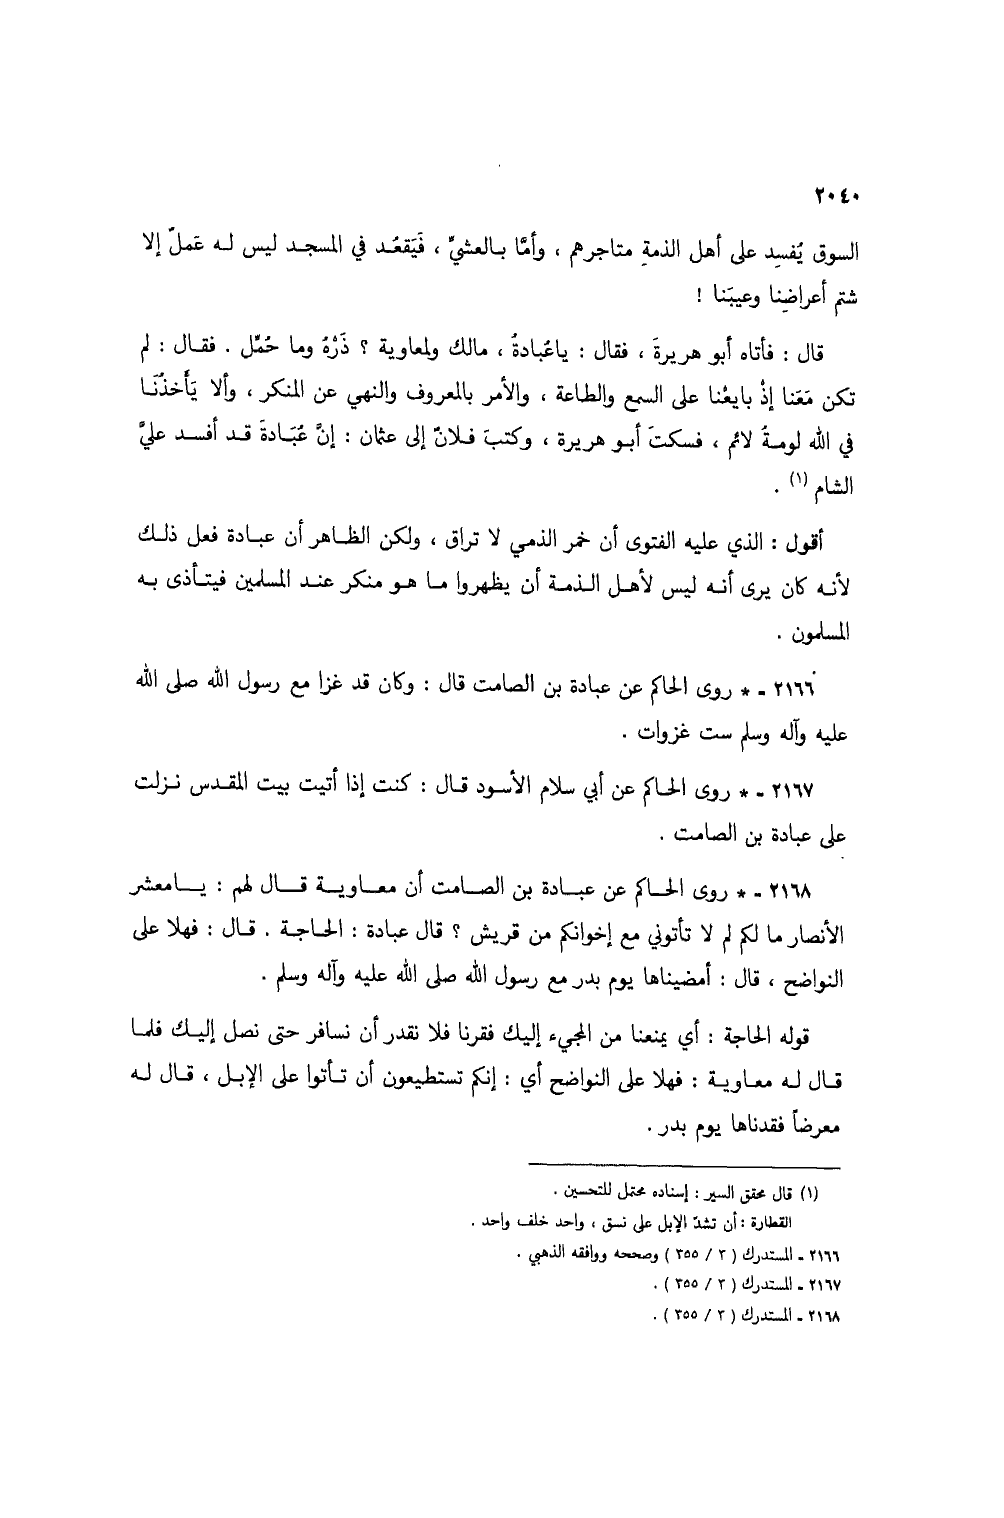 ٢٠٤٠
السوق يُفسِد على أهل الذمةِ متاجرهم ، وأمَّا بـالعشيِّ ، فَيَقعُـد في المسجـد ليس لـه عَملٌ إلا
شتم أعراضِنا وعيبَنا !
قال : فأتاه أبو هريرةَ ، فقال : ياعُبادةُ ، مالك ولمعاوية ؟ ذَرْهُ وما حُمِّل . فقـال : لم
تكن مَعَنا إذْ بايعْنا على السمع والطاعة ، والأمر بالمعروف والنهي عن المنكر ، وألا يَأخذُنَـا
في الله لومـةُ لائم ، فسكتَ أبـو هريرة ، وكتبَ فـلانٌ إلى عثمان : إنَّ عُبَـادةَ قـد أفسـد عليَّ
الشام (١) .
أقول : الذي عليه الفتوى أن خمر الذمي لا تراق ، ولكن الظـاهر أن عبـادة فعل ذلـك
لأنـه كان يرى أنـه ليس لأهـل الـذمـة أن يظهروا مـا هـو منكر عنـد المسلمين فيتـأذى بـه
المسلمون .
٢١٦٦ ـ * روى الحاكم عن عبادة بن الصامت قال : وكان قد غزا مع رسول الله صلى الله
عليه وآله وسلم ست غزوات .
٢١٦٧ ـ * روى الحـاكم عن أبي سلام الأسـود قـال : كنت إذا أتيت بيت المقـدس نـزلت
على عبادة بن الصامت .
٢١٦٨ ـ * روى الحـاكم عن عبـادة بن الصـامت أن معـاويـة قـال لهم : يـامعشر
الأنصار ما لكم لم لا تأتوني مع إخوانكم من قريش ؟ قال عبادة : الحـاجـة . قـال : فهلا على
النواضح ، قال : أمضيناها يوم بدر مع رسول الله صلى الله عليه وآله وسلم .
قوله الحاجة : أي يمنعنا من المجيء إليك فقرنا فلا نقدر أن نسافر حتى نصل إليـك فلمـا
قـال لـه معـاويـة : فهلا على النواضح أي : إنكم تستطيعون أن تـأتوا على الإبـل ، قـال لـه
معرضاً فقدناها يوم بدر .
(١) قال محقق السير : إسناده محتمل للتحسين .
القطارة : أن تشدّ الإبل على نسق ، واحد خلف واحد .
٢١٦٦ ـ المستدرك ( ٣ / ٣٥٥ ) وصححه ووافقه الذهبي .
٢١٦٧ ـ المستدرك ( ٣ / ٣٥٥ ) .
٢١٦٨ ـ المستدرك ( ٣ / ٣٥٥ ) .